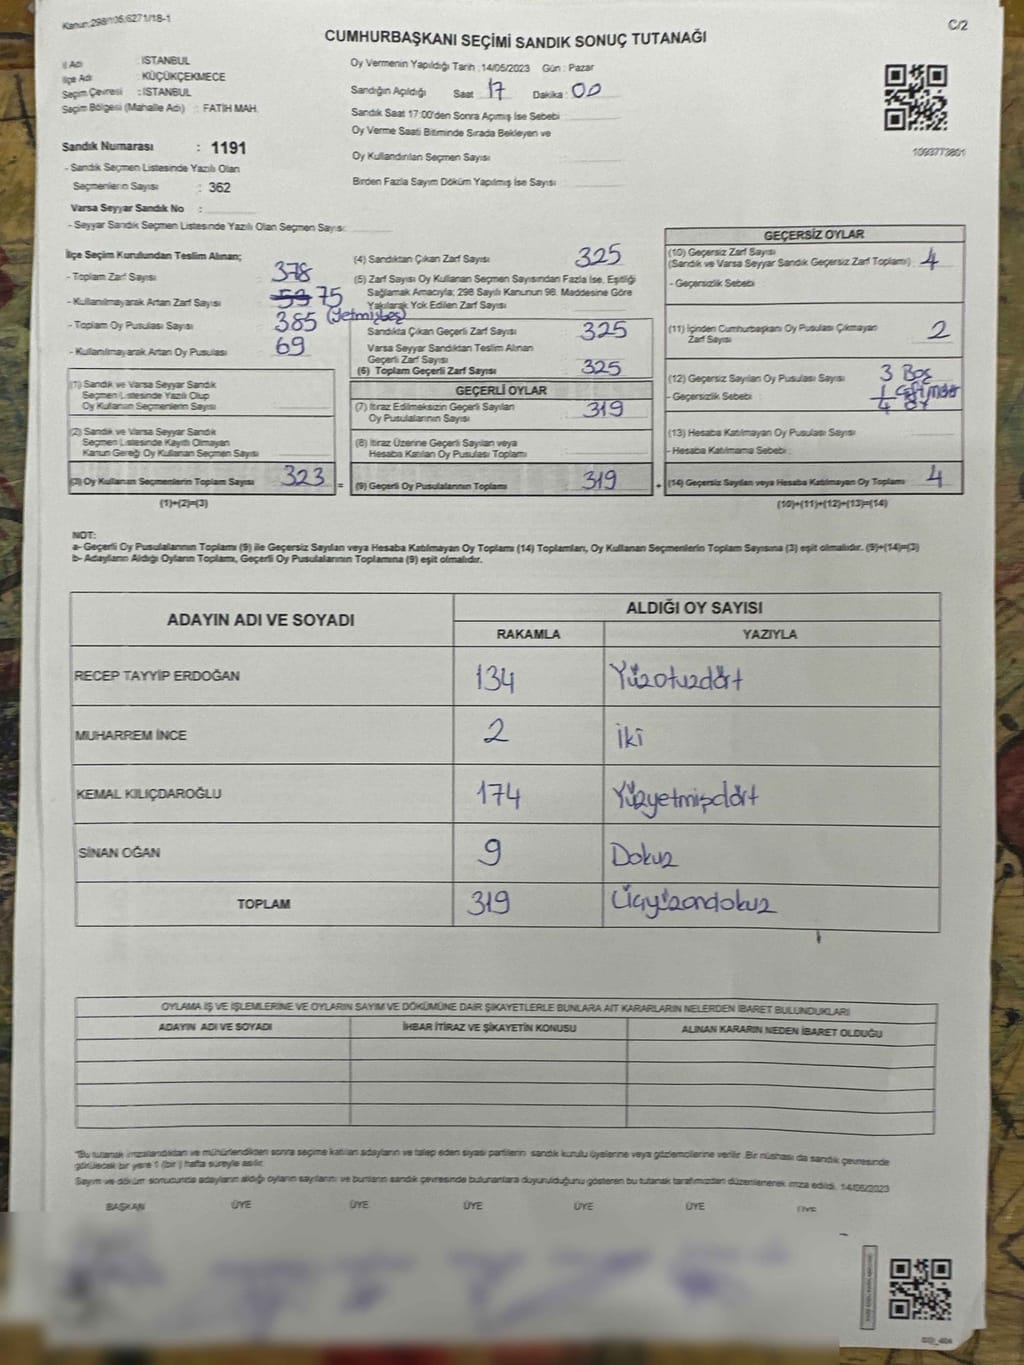 Kanun:298/105;6271/18-1
C/2
CUMHURBAŞKANI SEÇİMİ SANDIK SONUÇ TUTANAĞI
İl Adı : İSTANBUL
İlçe Adı : KÜÇÜKÇEKMECE
Seçim Çevresi : İSTANBUL
Seçim Bölgesi (Mahalle Adı) : FATİH MAH.
Sandık Numarası : 1191
- Sandık Seçmen Listesinde Yazılı Olan
Seçmenlerin Sayısı : 362
Varsa Seyyar Sandık No :
- Seyyar Sandık Seçmen Listesinde Yazılı Olan Seçmen Sayısı:
Oy Vermenin Yapıldığı Tarih : 14/05/2023 Gün : Pazar
Sandığın Açıldığı Saat : 17 Dakika : 00
Sandık Saat 17:00'den Sonra Açımış İse Sebebi :
Oy Verme Saati Bitiminde Sırada Bekleyen ve
Oy Kullandırılan Seçmen Sayısı :
Birden Fazla Sayım Döküm Yapılmış İse Sayısı :
1093773801
İlçe Seçim Kurulundan Teslim Alınan;
- Toplam Zarf Sayısı : 378
- Kullanılmayarak Artan Zarf Sayısı : 53 75
(Yetmişbeş)
- Toplam Oy Pusulası Sayısı : 385
- Kullanılmayarak Artan Oy Pusulası : 69
(1) Sandık ve Varsa Seyyar Sandık
Seçmen Listesinde Yazılı Olup
Oy Kullanan Seçmenlerin Sayısı :
(2) Sandık ve Varsa Seyyar Sandık
Seçmen Listesinde Kayıtlı Olmayan
Kanun Gereği Oy Kullanan Seçmen Sayısı :
(3) Oy Kullanan Seçmenlerin Toplam Sayısı : 323
(1)+(2)=(3)
(4) Sandıktan Çıkan Zarf Sayısı : 325
(5) Zarf Sayısı Oy Kullanan Seçmen Sayısından Fazla İse, Eşitliği
Sağlamak Amacıyla; 298 Sayılı Kanunun 98. Maddesine Göre
Yakılarak Yok Edilen Zarf Sayısı :
Sandıkta Çıkan Geçerli Zarf Sayısı : 325
Varsa Seyyar Sandıktan Teslim Alınan
Geçerli Zarf Sayısı :
(6) Toplam Geçerli Zarf Sayısı : 325
GEÇERLİ OYLAR
(7) İtiraz Edilmeksizin Geçerli Sayılan
Oy Pusulalarının Sayısı : 319
(8) İtiraz Üzerine Geçerli Sayılan veya
Hesaba Katılan Oy Pusulası Toplamı :
= (9) Geçerli Oy Pusulalarının Toplamı : 319
GEÇERSİZ OYLAR
(10) Geçersiz Zarf Sayısı
(Sandık ve Varsa Seyyar Sandık Geçersiz Zarf Toplamı) : 4
- Geçersizlik Sebebi :
(11) İçinden Cumhurbaşkanı Oy Pusulası Çıkmayan
Zarf Sayısı : 2
(12) Geçersiz Sayılan Oy Pusulası Sayısı : 3 Boş
- Geçersizlik Sebebi : 1
4 oy
(13) Hesaba Katılmayan Oy Pusulası Sayısı :
- Hesaba Katılmama Sebebi :
+ (14) Geçersiz Sayılan veya Hesaba Katılmayan Oy Toplamı : 4
(10)+(11)+(12)+(13)=(14)
NOT:
a- Geçerli Oy Pusulalarının Toplamı (9) ile Geçersiz Sayılan veya Hesaba Katılmayan Oy Toplamı (14) Toplamları, Oy Kullanan Seçmenlerin Toplam Sayısına (3) eşit olmalıdır. (9)+(14)=(3)
b- Adayların Aldığı Oyların Toplamı, Geçerli Oy Pusulalarının Toplamına (9) eşit olmalıdır.
ADAYIN ADI VE SOYADI
ALDIĞI OY SAYISI
RAKAMLA YAZIYLA
RECEP TAYYİP ERDOĞAN 134 Yüzotuzdört
MUHARREM İNCE 2 İki
KEMAL KILIÇDAROĞLU 174 Yüzyetmişdört
SİNAN OĞAN 9 Dokuz
TOPLAM 319 Üçyüzondokuz
OYLAMA İŞ VE İŞLEMLERİNE VE OYLARIN SAYIM VE DÖKÜMÜNE DAİR ŞİKAYETLERLE BUNLARA AİT KARARLARIN NELERDEN İBARET BULUNDUKLARI
ADAYIN ADI VE SOYADI İHBAR İTİRAZ VE ŞİKAYETİN KONUSU ALINAN KARARIN NEDEN İBARET OLDUĞU
"Bu tutanak imzalandıktan ve mühürlendikten sonra seçime katılan adayların ve talep eden siyasi partilerin sandık kurulu üyelerine veya gözlemcilerine verilir. Bir nüshası da sandık çevresinde
görülecek bir yere 1 (bir) hafta süreyle asılır.
Sayım ve döküm sonucunda adayların aldığı oyların sayılarını ve bunların sandık çevresinde bulunanlara duyurulduğunu gösteren bu tutanak tarafımızdan düzenlenerek imza edildi. 14/05/2023
BAŞKAN ÜYE ÜYE ÜYE ÜYE ÜYE ÜYE